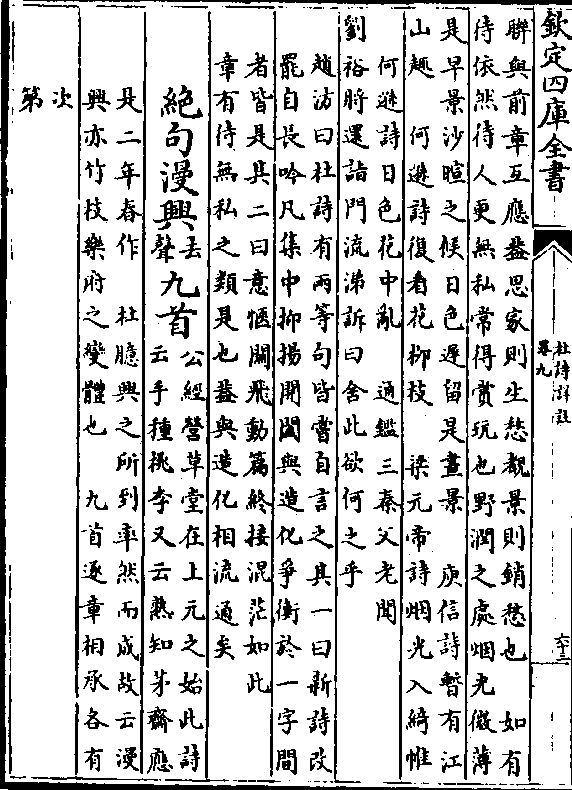 欽定四庫全書
杜詩詳註
卷九
六十三
聯與前章互應蓋思家則生愁觀景則銷愁也　如有
待依然待人更無私常得賞玩也野潤之處烟光微薄
是早景沙暄之候日色遲留是晝景　庾信詩暫有江
山趣　何遜詩復看花柳枝　梁元帝詩烟光入綺帷
何遜詩日色花中亂　通鑑三秦父老聞
劉裕將還詣門流涕訴曰舍此欲何之乎
趙汸曰杜詩有兩等句皆嘗自言之其一曰新詩改
罷自長吟凡集中抑揚開闔與造化爭衡於一字間
者皆是其二曰意愜關飛動篇終接混茫如此
章有待無私之類是也蓋與造化相流通矣
絕句漫興去聲九首
公經營草堂在上元之始此詩
云手種桃李又云熟知茅齋應
是二年春作　杜臆興之所到率然而成故云漫
興亦竹枝樂府之變體也　九首逐章相承各有
次
第